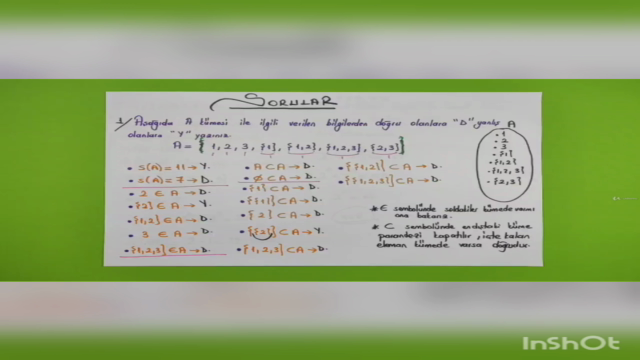 SORULAR
1/ Aşağıda A kümesi ile ilgili verilen bilgilerden doğru olanlara "D" yanlış
olanlara "Y" yazınız.
A = { 1, 2, 3, {1}, {1,2}, {1,2,3}, {2,3} }
• S(A) = 11 → Y.
• S(A) = 7 → D.
• 2 ∈ A → D.
• {2} ∈ A → Y.
• {1,2} ∈ A → D.
• 3 ∈ A → D.
• {1,2,3} ∈ A → D.
• A ⊂ A → D.
• ∅ ⊂ A → D.
• {1} ⊂ A → D.
• {{1}} ⊂ A → D.
• {2} ⊂ A → D.
• {{2}} ⊂ A → Y.
• {1,2,3} ⊂ A → D.
• {{1,2}} ⊂ A → D.
• {{1,2,3}} ⊂ A → D.
* ∈ sembolünde kümede varmı
ona bakarız.
* ⊂ sembolünde küme
parantezi kapatılır, içte kalan
eleman kümede varsa doğrudur.
A
• 1
• 2
• 3
• {1}
• {1,2}
• {1,2,3}
• {2,3}
InShOt